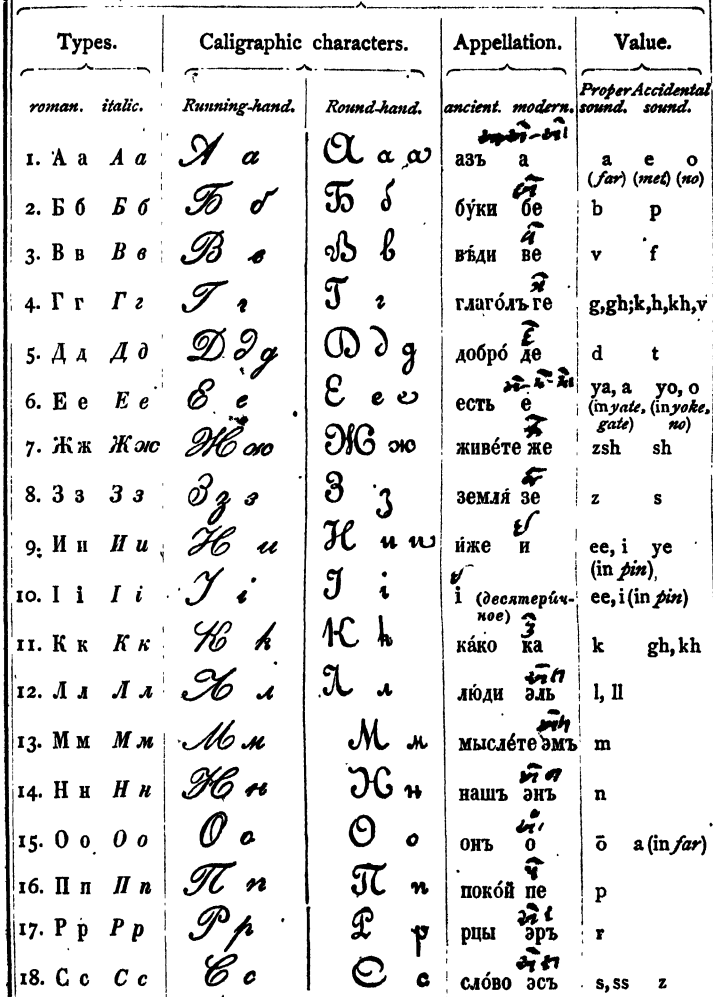 Types. Caligraphic characters. Appellation. Value.
roman. italic. Running-hand. Round-hand. ancient. modern. Proper sound. Accidental sound.
1. А а А а А а А а а азъ а a e o
(far) (met) (no)
2. Б б Б б Б б Б б бу́ки бе b p
3. В в В в В в В в вѣ́ди ве v f
4. Г г Г г Г г Г г глаго́лъ ге g,gh; k,h,kh,v
5. Д д Д д Д д д Д д д добро́ де d t
6. Е е Е е Е е Е е е есть е ya, a yo, o
(in yate, gate) (in yoke, no)
7. Ж ж Ж ж Ж ж Ж ж живе́те же zsh sh
8. З з З з З з з З з земля́ зе z s
9. И и И и И и И и и и́же и ee, i ye
(in pin),
10. І і І і І і І і і (десятери́чное) ee, i (in pin)
11. К к К к К к К к ка́ко ка k gh, kh
12. Л л Л л Л л Л л лю́ди эль l, ll
13. М м М м М м М м мысле́те эмъ m
14. Н н Н н Н н Н н нашъ энъ n
15. О о О о О о О о онъ о ō a (in far)
16. П п П п П п П п поко́й пе p
17. Р р Р р Р р Р р рцы эръ r
18. С с С с С с С с сло́во эсъ s, ss z